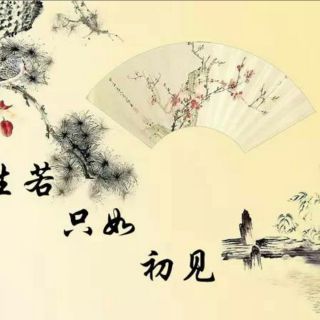 生若
只如
初见